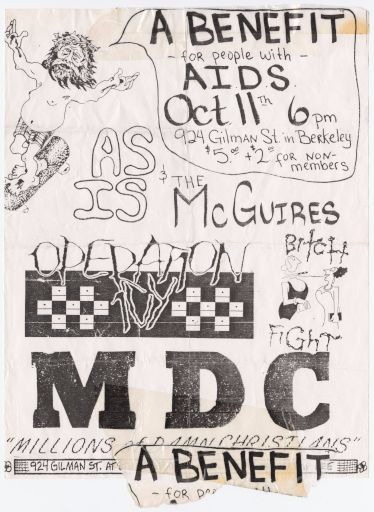 A BENEFIT
- for people with -
A.I.D.S.
Oct 11TH 6pm
924 Gilman St. in Berkeley
$5.00 + $2.00 for non-members
AS IS & THE McGUIRES
OPERATION IVY
BITCH FIGHT
MDC
"MILLIONS OF DAMN CHRISTIANS"
924 GILMAN ST. AT
A BENEFIT
- for